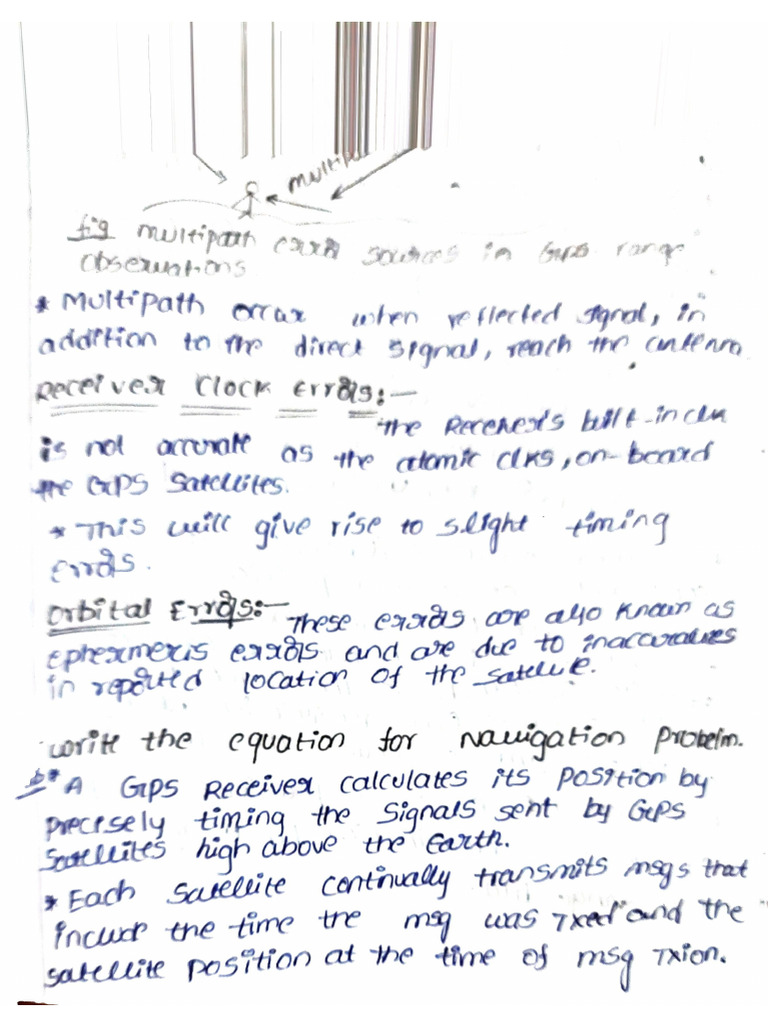 multip
fig multipath errors sources in GPS range
observations
* Multipath occur when reflected signal, in
addition to the direct signal, reach the antenna
Receiver Clock Errors:-
The Receiver's built-in clk
is not accurate as the atomic clks, on-board
the GPS Satellites.
* This will give rise to slight timing
errors.
Orbital Errors:- These errors are also known as
ephermeris errors and are due to inaccuracies
in reported location of the satellite.
write the equation for Navigation Probelm.
b* A GPS Receiver calculates its position by
precisely timing the signals sent by GPS
Satellites high above the Earth.
* Each satellite continually transmits msgs that
include the time the msg was Txed and the
satellite position at the time of msg Txion.